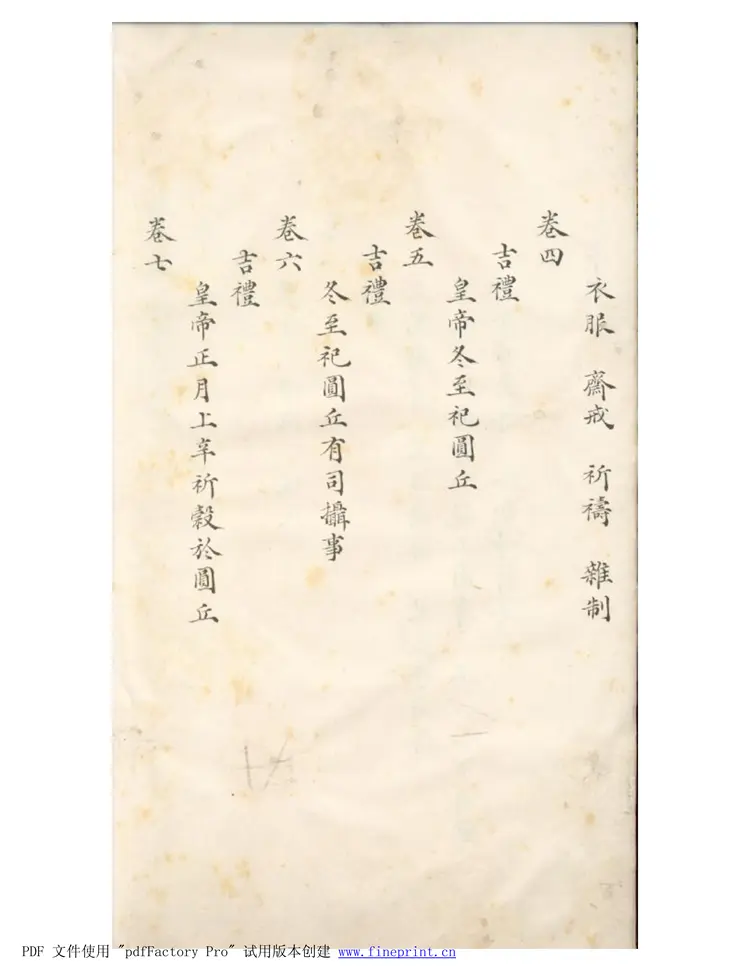 衣服　齋戒　祈禱　雜制
卷四
吉禮
皇帝冬至祀圓丘
卷五
吉禮
冬至祀圓丘有司攝事
卷六
吉禮
皇帝正月上辛祈穀於圓丘
卷七
PDF 文件使用 "pdfFactory Pro" 试用版本创建 www.fineprint.cn